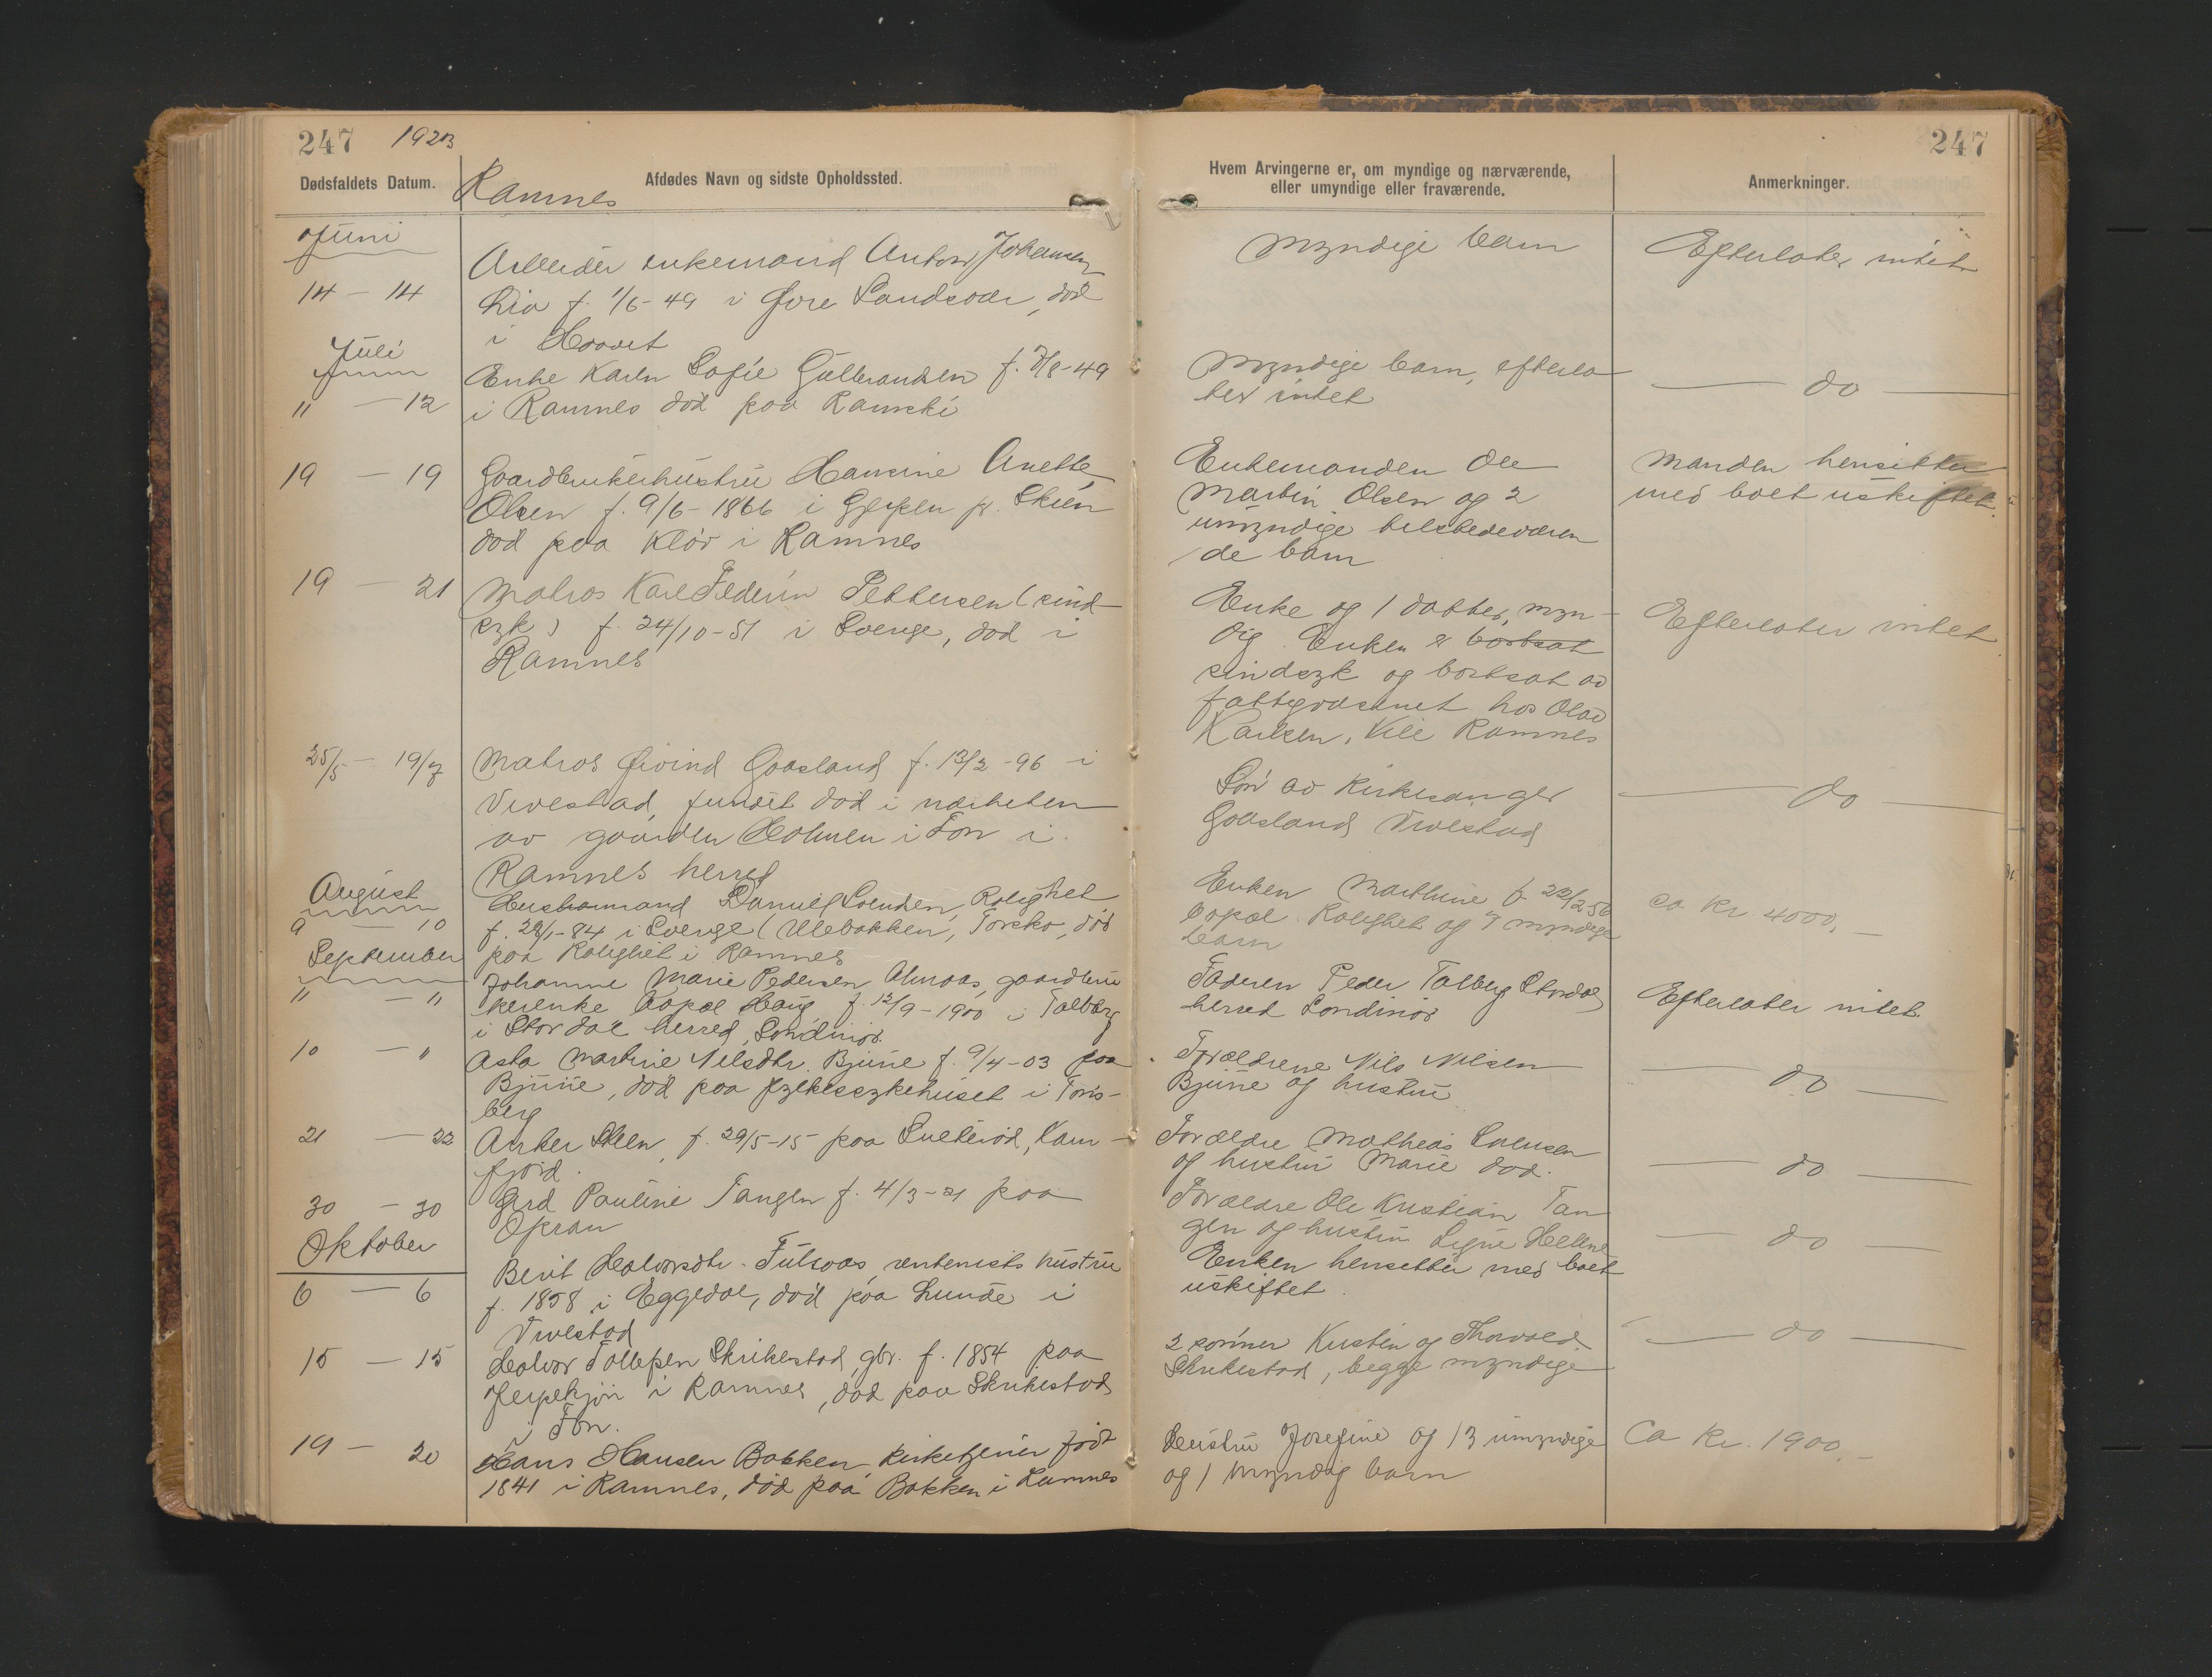 247 1923
Dødsfaldets Datum.
Ramnes
Afdødes Navn og sidste Opholdssted.
Juni
14 — 14
Arbeider enkemand Anton Johansen
Lia f. 1/6-49 i Øvre Sandsvær, død
i Hovet
Juli
" — 12
Enke Karen Sofie Gulbrandsen f. 7/8-49
i Ramnes død paa Ramski
19 — 19
Gaardbrukerhustru Hansine Anette
Olsen f. 9/6-1866 i Gjerpen pr. Skien
død paa Kløv i Ramnes
19 — 21
Matros Karl Federin Pettersen (sind-
syk) f. 24/10-51 i Sverige, død i
Ramnes
25/5 — 19/7
Matros Øivind Gaasland f. 13/2-96 i
Vivestad, fundet død i nærheten
av gaarden Holmen i Fon i
Ramnes herred
August
9 — 10
Husmand Daniel Svendsen, Rolighet
f. 28/1-84 i Sverige (Ulebakken, Torsko, død
paa Rolighet i Ramnes
September
" — "
Johanne Marie Pedersen Almaas, gaardbru
kerenke bopæl Haug f. 12/9-1900 i Talberg
i Stordal herred, Søndmør.
10 — "
Asta Martine Nilsdtr. Bjune f. 9/4-03 paa
Bjune, død paa fylkessykehuset i Tøns-
berg
21 — 22
Anker Steen, f. 29/5-15 paa Sulterød, Ram-
fjord.
30 — 30
Gerd Pauline Tangen f. 4/3-21 paa
Oksan
Oktober
6 — 6
Berit Halvorsdtr. Fulsaas, rentenists hustru
f. 1858 i Eggedal, død paa Lunde i
Vivestad
15 — 15
Halvor Tollefsen Skrikestad, gbr. f. 1854 paa
Jerpekjøn i Ramnes, død paa Skrikestad
i Fon.
19 — 20
Hans Hansen Bakken, kirketjener født
1841 i Ramnes, død paa Bakken i Ramnes
247
Hvem Arvingerne er, om myndige og nærværende,
eller umyndige eller fraværende.
Anmerkninger.
Myndige barn
Efterlater intet
Myndige barn, efterla
ter intet
— do —
Enkemanden Ole
Martin Olsen og 2
umyndige tilstedeværen
de barn
Manden hensitter
med boet uskiftet.
Enke og 1 datter, myn-
dig. Enken er bortsat
sindsyk og bortsat av
fattigvæsenet hos Olav
Karlsen, Kile Ramnes
Efterlater intet
Søn av Kirkesanger
Gaasland Vivestad
— do —
Enken Marthine f 22/2-56
bopæl Rolighet og 7 myndige
barn
ca kr 4000,—
Faderen Peder Talberg Stordal
herred Søndmør
Efterlater intet
Forældrene Nils Nilsen
Bjune og hustru
— do —
Forældre Mathias Svensen
og hustru Marie død.
— do —
Forældre Ole Kristian Tan
gen og hustru Signe Hellene
— do —
Enken hensitter med boet
uskiftet.
2 sønner Kristen og Thorvald
Skrikestad, begge myndige
— do —
Hustru Josefine og 13 umyndige
og 1 myndig barn
Ca kr. 1900,—